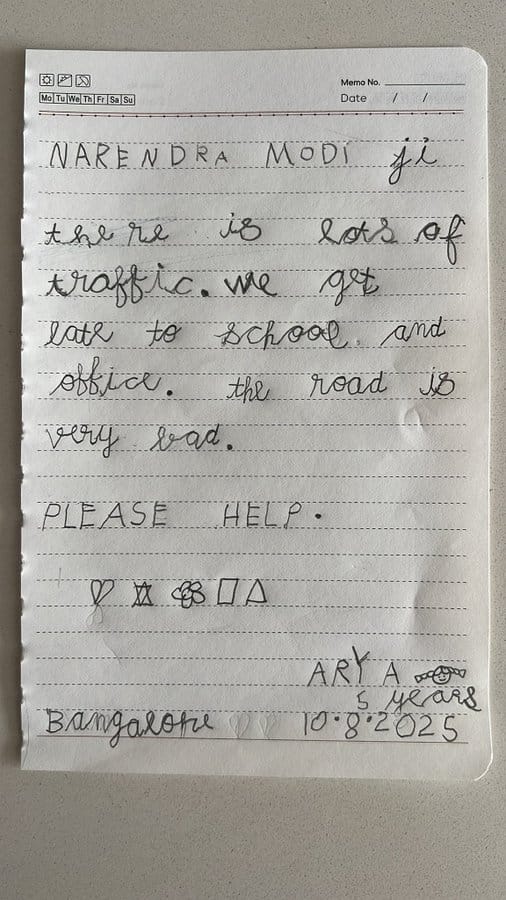 Memo No.
Mo Tu We Th Fr Sa Su
Date / /
NARENDRA MODI ji
there is lots of
traffic. we get
late to school and
office. the road is
very bad.
PLEASE HELP.
ARYA
5 years
Bangalore 10.8.2025